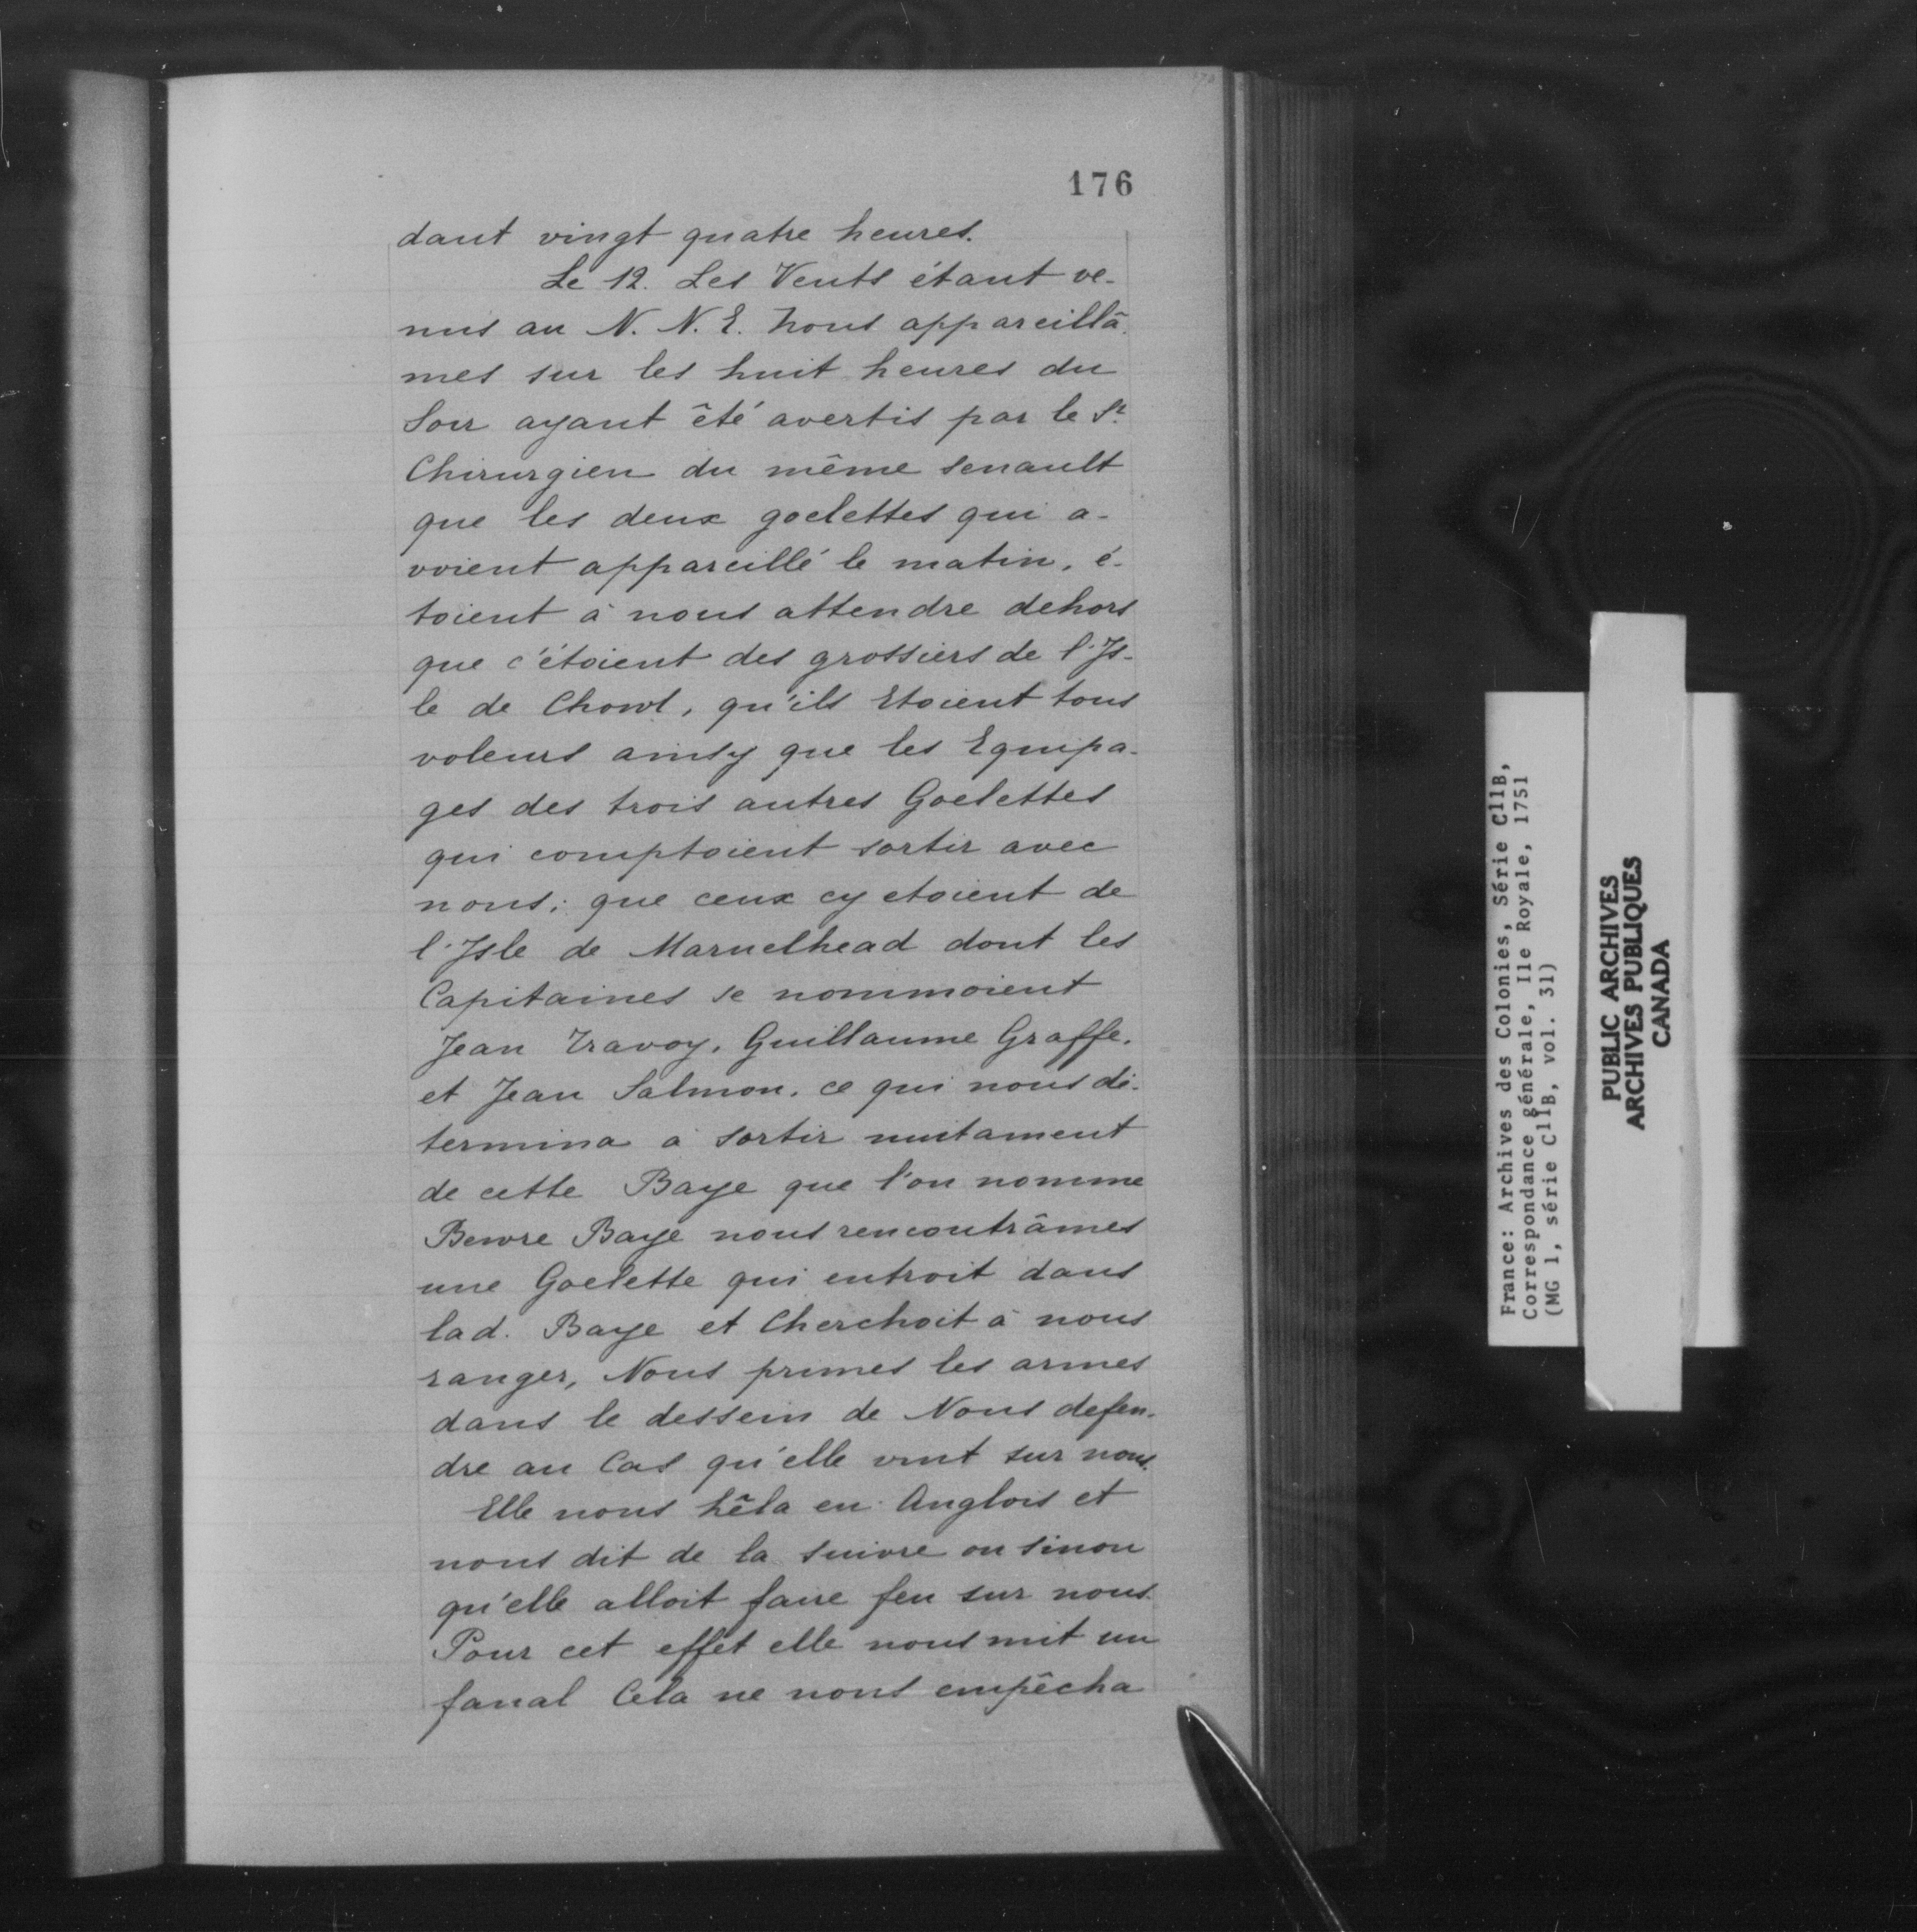 176
dant vingt quatre heures.
Le 12. Les Vents étant ve-
nus au N. N. E. nous appareillâ-
mes sur les huit heures du
Soir ayant êté avertis par le Sr.
Chirurgien du même senault
que les deux goelettes qui a-
voient appareillé le matin, é-
toient à nous attendre dehors
que c'étoient des grossiers de l'Is-
le de Chowl, qu'ils Etoient tous
voleurs ainsy que les Equipa-
ges des trois autres Goelettes
qui comptoient sortir avec
nous; que ceux cy etoient de
l'Isle de Maruelhead dont les
Capitaines se nommoient
Jean Travoy, Guillaume Graffe,
et Jean Salmon, ce qui nous dé-
termina à sortir nuitament
de cette Baye que l'on nomme
Bewre Baye nous rencontrâmes
une Goelette qui entroit dans
lad. Baye et Cherchoit à nous
ranger, Nous primes les armes
dans le dessein de Nous defen-
dre au Cas qu'elle vint sur nous.
Elle nous hêla en Anglois et
nous dit de la suivre ou sinon
qu'elle alloit faire feu sur nous.
Pour cet effet elle nous mit un
fanal Cela ne nous empêcha
France: Archives des Colonies, Série C11B,
Correspondance générale, Ile Royale, 1751
(MG 1, série C11B, vol. 31)
PUBLIC ARCHIVES
ARCHIVES PUBLIQUES
CANADA